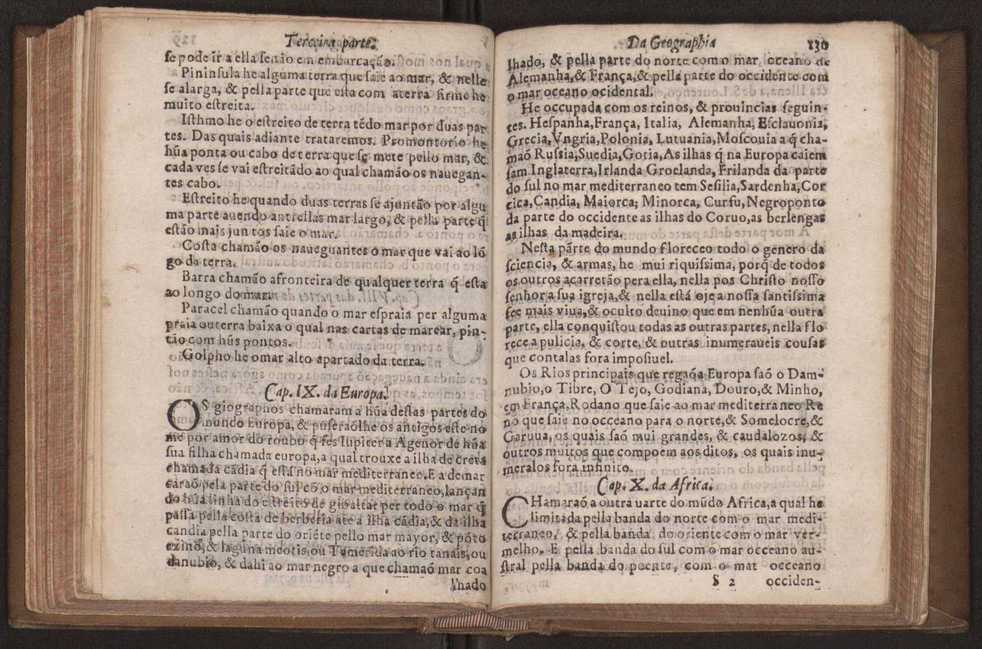 Terceira parte.
se pode ir a ella senão em embarcação.
Pininsula he alguma terra que saie ao mar, & nelle
se alarga, & pella parte que esta com a terra firme he
muito estreita.
Isthmo he o estreito de terra tẽdo mar por duas par
tes. Das quais adiante trataremos. Promontorio he
hũa ponta ou cabo de terra que se mete pello mar, &
cada ves se vai estreitãdo ao qual chamão os nauegan-
tes cabo.
Estreito he quando duas terras se ajuntão por algu
ma parte auendo antrellas mar largo, & pella parte q̃
estão mais juntos saie o mar.
Costa chamão os naueguantes o mar que vai ao lõ
go da terra.
Barra chamão afronteira de qualquer terra q̃ esta
ao longo do mar.
Paracel chamão quando o mar espraia per alguma
praia outerra baixa o qual nas cartas de marear, pin-
tão com hũs pontos.
Golpho he omar alto apartado da terra.
Cap. IX. da Europa.
OS giographos chamaram a hũa destas partes do
mundo Europa, & puseraõlhe os antigos este no
me por amor do roubo q̃ fes Iupiter a Agenor de hũa
sua filha chamada europa, a qual trouxe a ilha de creta
chamada cãdia q̃ està no mar mediterraneo. E a demar
carão pela parte do sul cõ o mar mediterraneo, lançan
do hũa linha do estreito de gibaltar per todo o mar q̃
passa pella costa de berberia ate a ilha cãdia, & da ilha
candia pella parte do oriẽte pello mar mayor, & põto
exino, & laguna meotis, ou Tomerida ao rio tanais, ou
danubio, & dahi ao mar negro a que chamaõ mar coa
lhado
Da Geographia 130
lhado, & pella parte do norte com o mar occeano de
Alemanha, & França, & pella parte do occidente com
o mar oceano ocidental.
He occupada com os reinos, & prouincias seguin-
tes. Hespanha, França, Italia, Alemanha, Esclauonia,
Grecia, Vngria, Polonia, Lutuania, Moscouia a q̃ cha-
maõ Russia, Suedia, Gotia, As ilhas q̃ na Europa caiem
sam Inglaterra, Irlanda Groelanda, Frilanda da parte
do sul no mar mediterraneo tem Sesilia, Sardenha, Cor
cica, Candia, Maiorca, Minorca, Cursu, Negroponto
da parte do occidente as ilhas do Coruo, as berlengas
as ilhas da madeira.
Nesta pãrte do mundo floreceo todo o genero da
sciencia, & armas, he mui riquissima, porq̃ de todos
os outros acarretão pera ella, nella pos Christo nosso
senhor a sua igreja, & nella está oje a nossa santissima
fee mais viua, & oculto deuino que em nenhũa outra
parte, ella conquistou todas as outras partes, nella flo
rece a pulicia, & corte, & outras inumeraueis cousas
que contalas fora impossiuel.
Os Rios principais que regaõ a Europa saõ o Dam-
nubio, o Tibre, O Tejo, Godiana, Douro, & Minho,
em França, Rodano que saie ao mar mediterraneo Re
no que saie no occeano para o norte, & Somelocre, &
Garuua, os quais saõ mui grandes, & caudalozos, &
outros muitos que compoem aos ditos, os quais inu-
meralos fora infinito.
Cap. X. da Africa.
CHamaraõ a outra uarte do mũdo Africa, a qual he
limitada pella banda do norte com o mar medi-
terraneo, & pella banda do oriente com o mar ver-
melho. E pella banda do sul com o mar occeano au-
stral pella banda do poente, com o mar occeano
S 2 occiden-